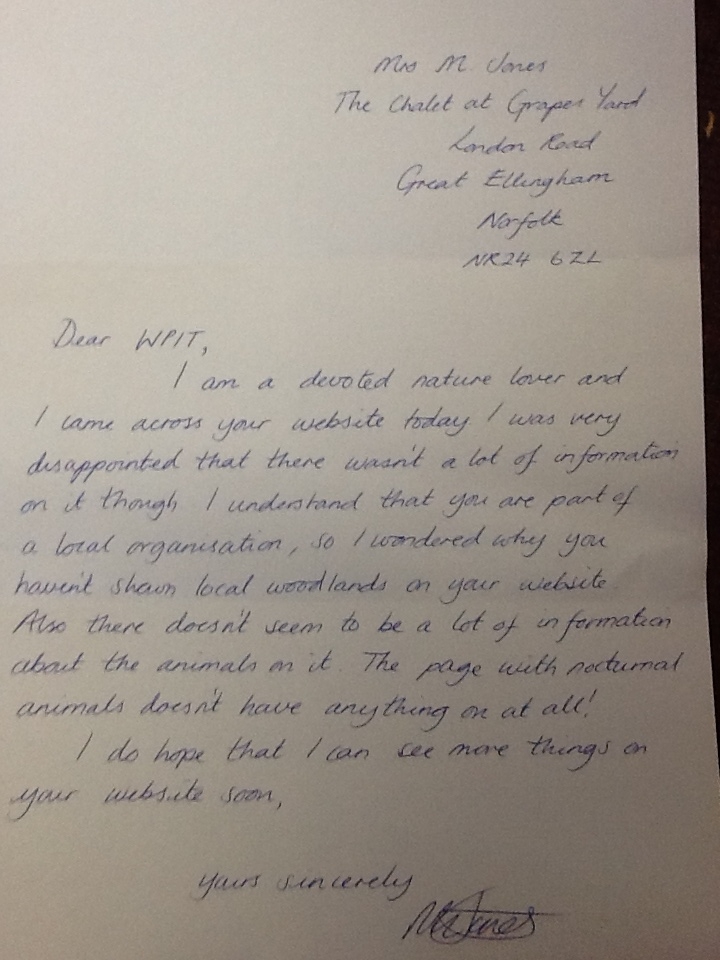 Mrs M. Jones
The Chalet at Grapes Yard
London Road
Great Ellingham
Norfolk
NR24 6ZL
Dear WPIT,
I am a devoted nature lover and
I came across your website today. I was very
disappointed that there wasn't a lot of information
on it though. I understand that you are part of
a local organisation, so I wondered why you
haven't shown local woodlands on your website.
Also there doesn't seem to be a lot of information
about the animals on it. The page with nocturnal
animals doesn't have anything on at all!
I do hope that I can see more things on
your website soon,
yours sincerely
M Jones